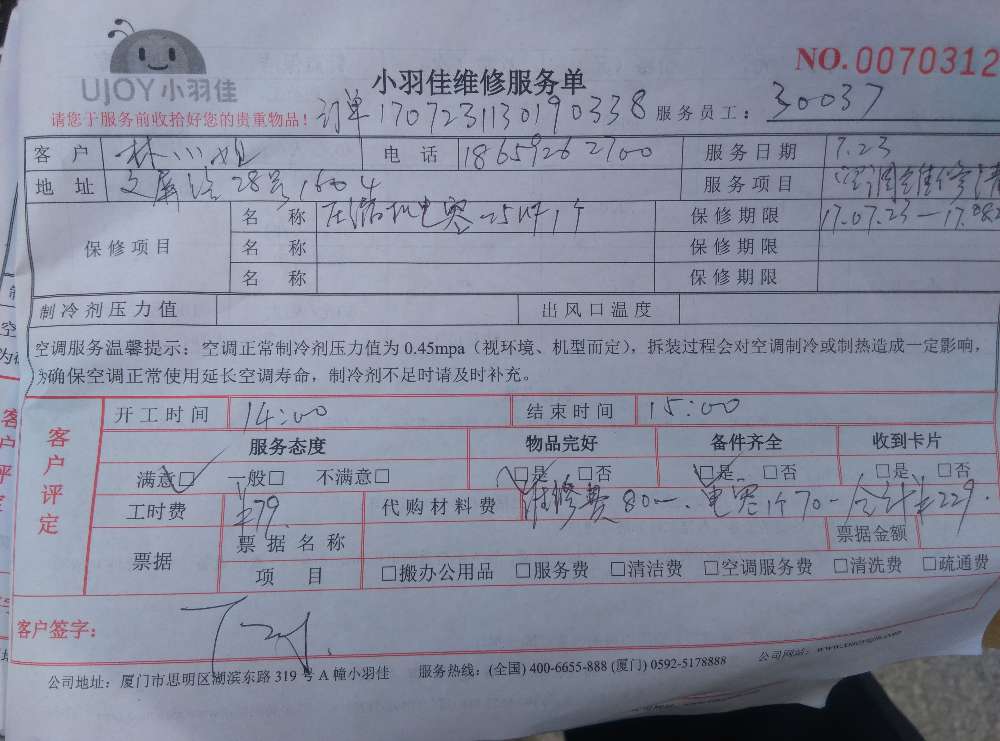 UJOY小羽佳
小羽佳维修服务单
NO.0070312
请您于服务前收拾好您的贵重物品！
订单1707231130190338
服务员工：30037
客户 林小姐 电话 18659262700 服务日期 7.23
地址 文屏 28号1604 服务项目 空调维修清
保修项目 名称 压缩机电容 25UF1个 保修期限 17.07.23—17.08.
名称 保修期限
名称 保修期限
制冷剂压力值 出风口温度
空调服务温馨提示：空调正常制冷剂压力值为 0.45mpa（视环境、机型而定），拆装过程会对空调制冷或制热造成一定影响，
为确保空调正常使用延长空调寿命，制冷剂不足时请及时补充。
客户评定
开工时间 14:00 结束时间 15:00
服务态度 物品完好 备件齐全 收到卡片
满意□ 一般□ 不满意□ □是 □否 □是 □否 □是 □否
工时费 ¥79 代购材料费 维修费80一、电容1个70一合计¥229.
票据 票据名称 票据金额
项目 □搬办公用品 □服务费 □清洁费 □空调服务费 □清洗费 □疏通费
客户签字：
公司地址：厦门市思明区湖滨东路 319 号 A 幢小羽佳 服务热线：(全国) 400-6655-888 (厦门) 0592-5178888 公司网站：